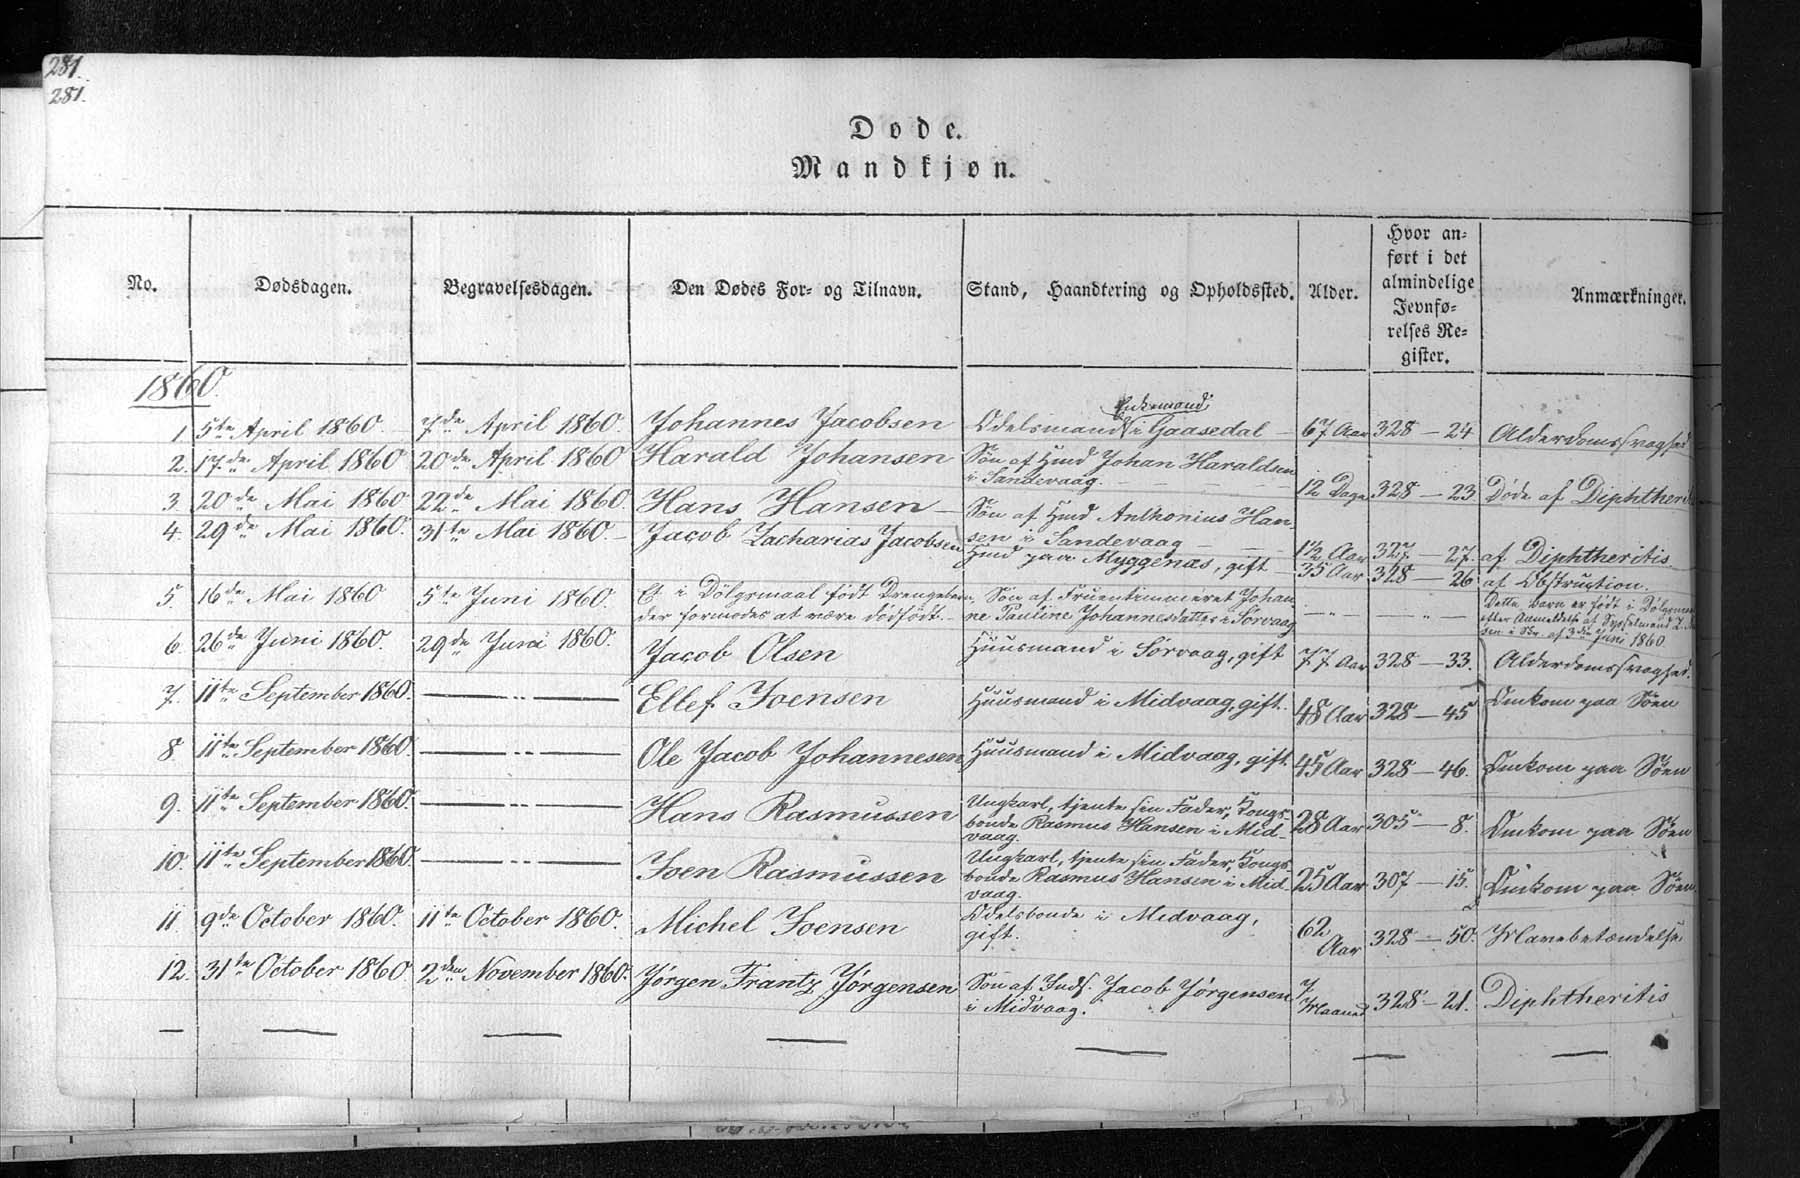 281.
281.
Døde.
Mandkjøn.
No. Dødsdagen. Begravelsesdagen. Den Dødes For- og Tilnavn. Stand, Haandtering og Opholdssted. Alder. Hvor an-
ført i det
almindelige
Jevnfø-
relses Re-
gister. Anmærkninger.
1860.
1. 5te April 1860. 7de April 1860. Johannes Jacobsen Odelsmand i Gaasedal 67 Aar 328 — 24 Alderdomssvaghed
Enkemand
2. 17de April 1860 20de April 1860 Harald Johansen Søn af Hmd Johan Haraldsen
i Sandevaag. 12 Dage 328 — 23 Døde af Diphtheri
3. 20de Mai 1860 22de Mai 1860. Hans Hansen Søn af Hmd Anthonius Han-
sen i Sandevaag 1½ Aar 327 — 27. af Diphtheritis.
4. 29de Mai 1860. 31te Mai 1860. Jacob Zacharias Jacobsen Hmd paa Myggenæs, gift 35 Aar 328 — 26 af Obstruction.
5. 16de Mai 1860 5te Juni 1860. Et i Dölgsmaal födt Drengebarn,
der formodes at være dödfödt. Sön af Fruentimmeret Johan-
ne Pauline Johannesdatter i Sorvaag — " — — " — Dette Barn er födt i Dölgsmaa
efter Anmeldelse af Sysselmand
sen i Sbr. af 3die Juni 1860
6. 26de Juni 1860. 29de Juni 1860. Jacob Olsen Huusmand i Sörvaag, gift 77 Aar 328 — 33. Alderdomssvaghed.
7. 11te September 1860. — " — Ellef Joensen Huusmand i Midvaag, gift. 48 Aar 328 — 45 Omkom paa Söen
8 11te September 1860. — " — Ole Jacob Johannesen Huusmand i Midvaag, gift. 45 Aar 328 — 46. Omkom paa Söen
9. 11te September 1860. — " — Hans Rasmussen Ungkarl, tjente sin Fader, Kongs-
bonde Rasmus Hansen i Mid-
vaag. 28 Aar 305 — 8. Omkom paa Söen
10. 11te September 1860. — " — Joen Rasmussen Ungkarl, tjente sin Fader, Kongs
bonde Rasmus Hansen i Mid
vaag. 25 Aar 307 — 15. Omkom paa Söen.
11 9de October 1860. 11te October 1860. Michel Joensen Odelsbonde i Midvaag,
gift. 62
Aar 328 — 50. Mavebetændelse
12. 31te October 1860 2den November 1860. Jørgen Frantz Jørgensen Søn af Inds. Jacob Jørgensen
i Midvaag. 7
Maaned 328 — 21. Diphtheritis